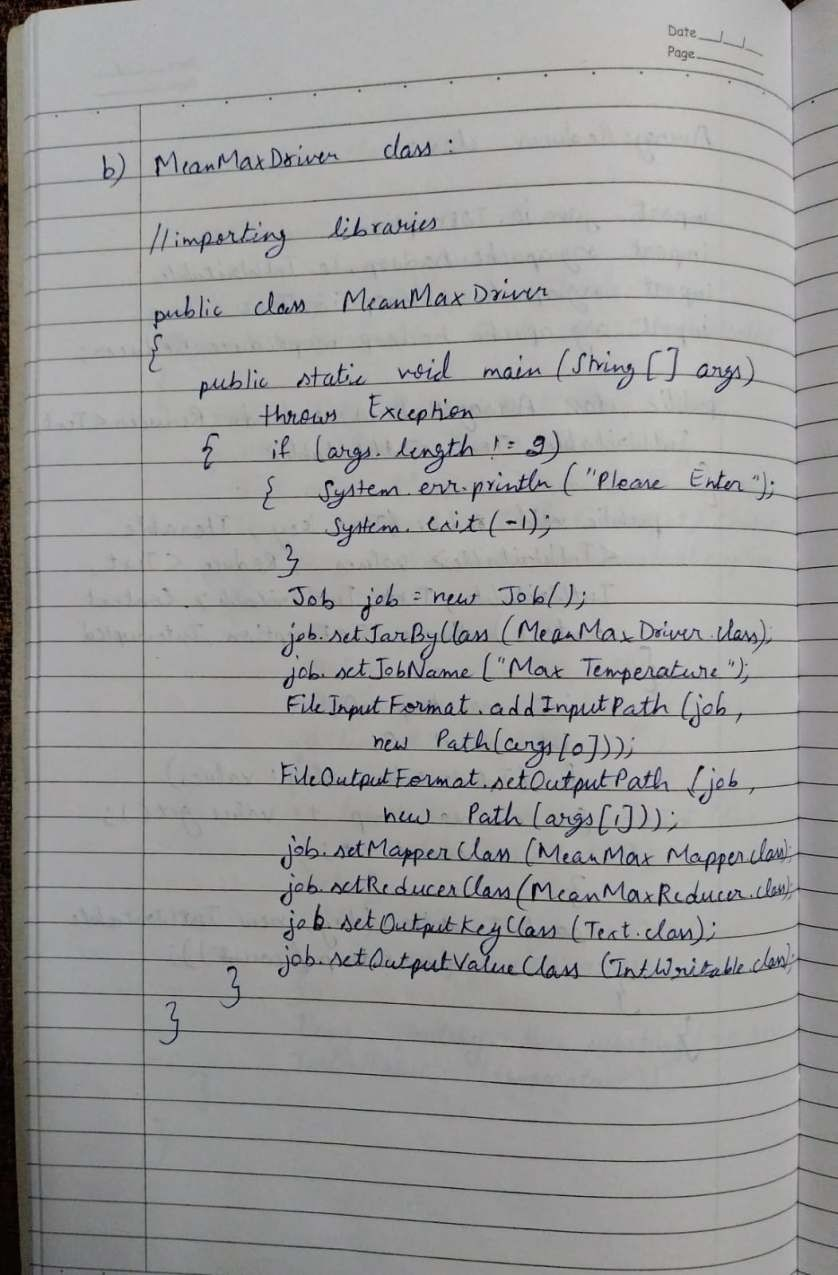 Date
Page
b) MeanMaxDriver class :
//importing libraries
public class MeanMaxDriver
{
public static void main (String [] args)
throws Exception
{ if (args. length != 2)
{ System. err. println ("Please Enter");
System. exit (-1);
}
Job job = new Job();
job. setJarByClass (MeanMaxDriver. class);
job. setJobName ("Max Temperature");
FileInputFormat. addInputPath (job,
new Path(args[0]));
FileOutputFormat. setOutputPath (job,
new Path (args[1]));
job. setMapperClass (MeanMax Mapper. class);
job. setReducerClass (MeanMaxReducer. class);
job. setOutputKeyClass (Text. class);
job. setOutputValueClass (IntWritable. class);
}
}